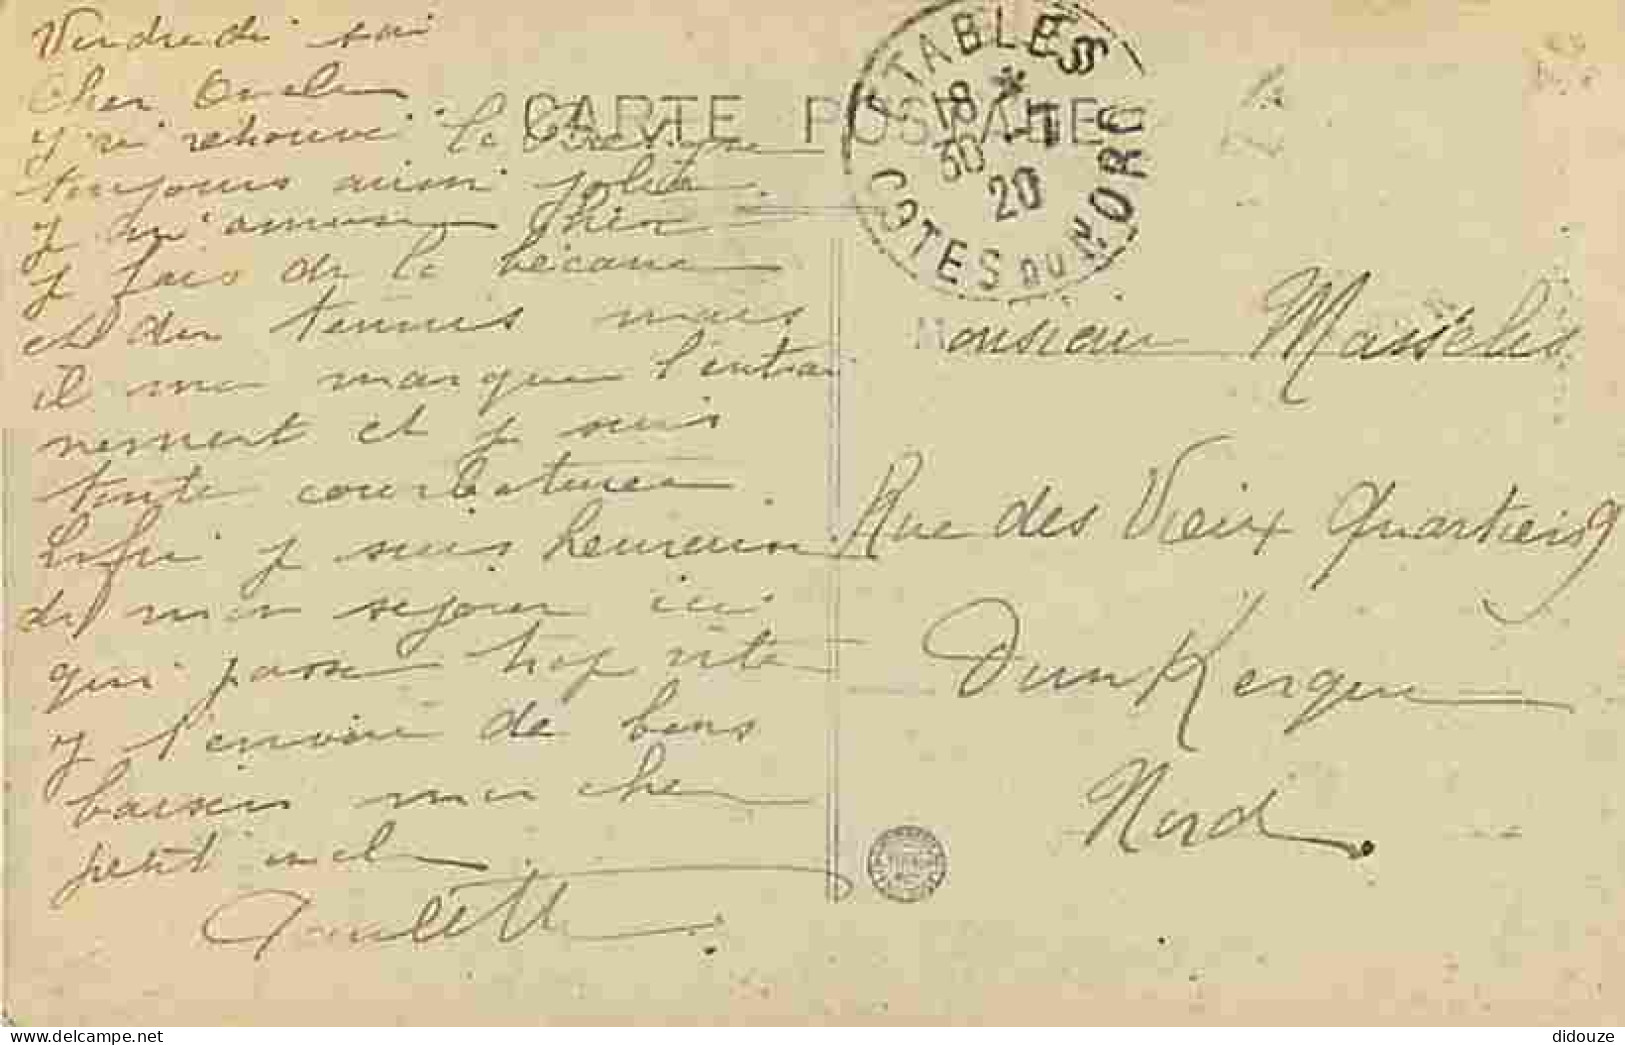 Vendredi soir
Cher Oncle
J'ai retrouvé la Bretagne
toujours aussi jolie.
J m'amuse bien
je fais de la bécane
et du tennis mais
il me manque l'entraî
nement et je suis
toute courbaturée.
Enfin je suis heureuse
de mon séjour ici
qui passe trop vite
Je t'envoie de bons
baisers mon cher
petit oncle
Paulette
CARTE POSTALE
ETABLES
18 * -7
30 20
COTES DU NORD
Monsieur Masselis
Rue des Vieux Quartiers 9
DunKerque
Nord.
didouze